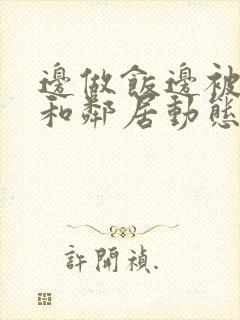 邊做飯邊被
和鄰居動態
許開禎.